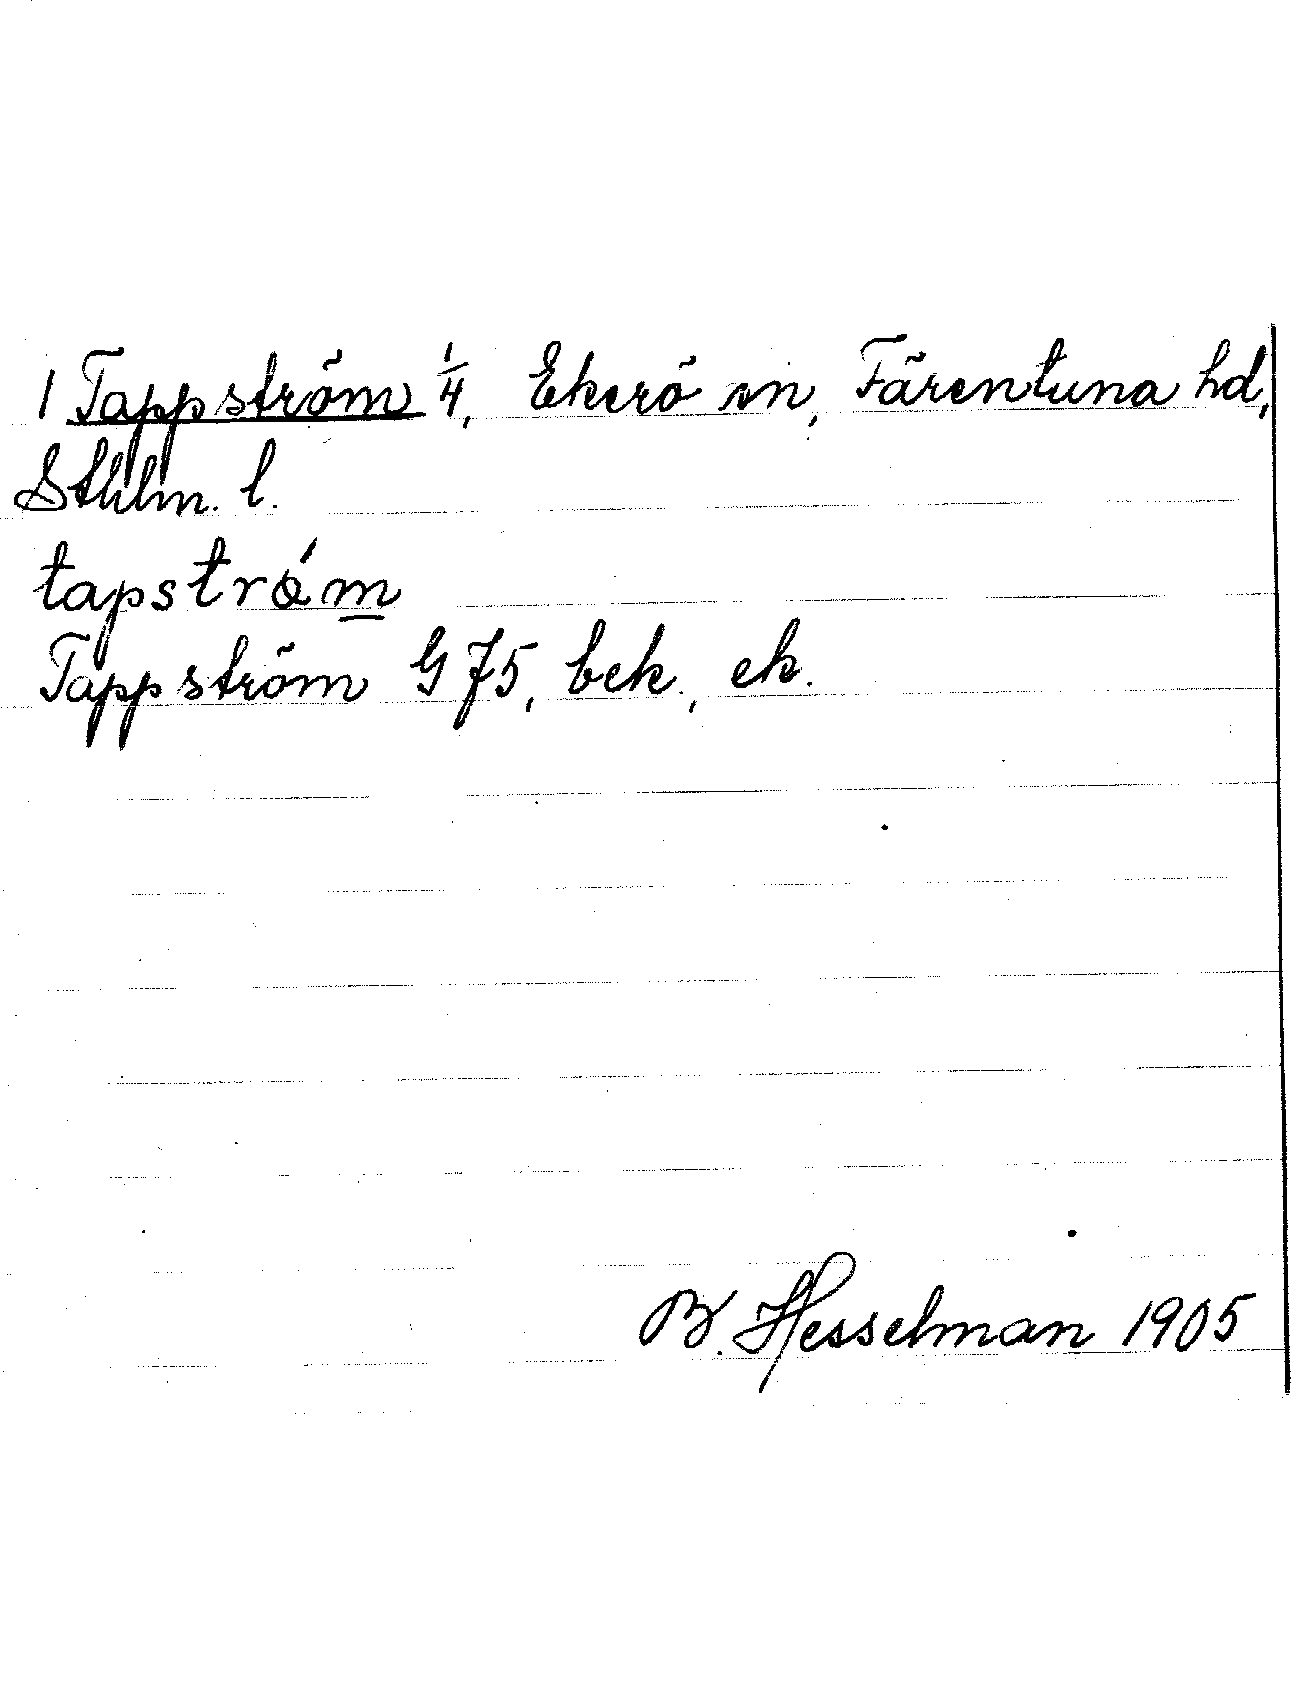 1 Tappström 1/4, Ekerö sn, Färentuna hd,
Sthlm. l.
tapstrǿm̲
Tappström G 75, bek., ek.
B. Hesselman 1905